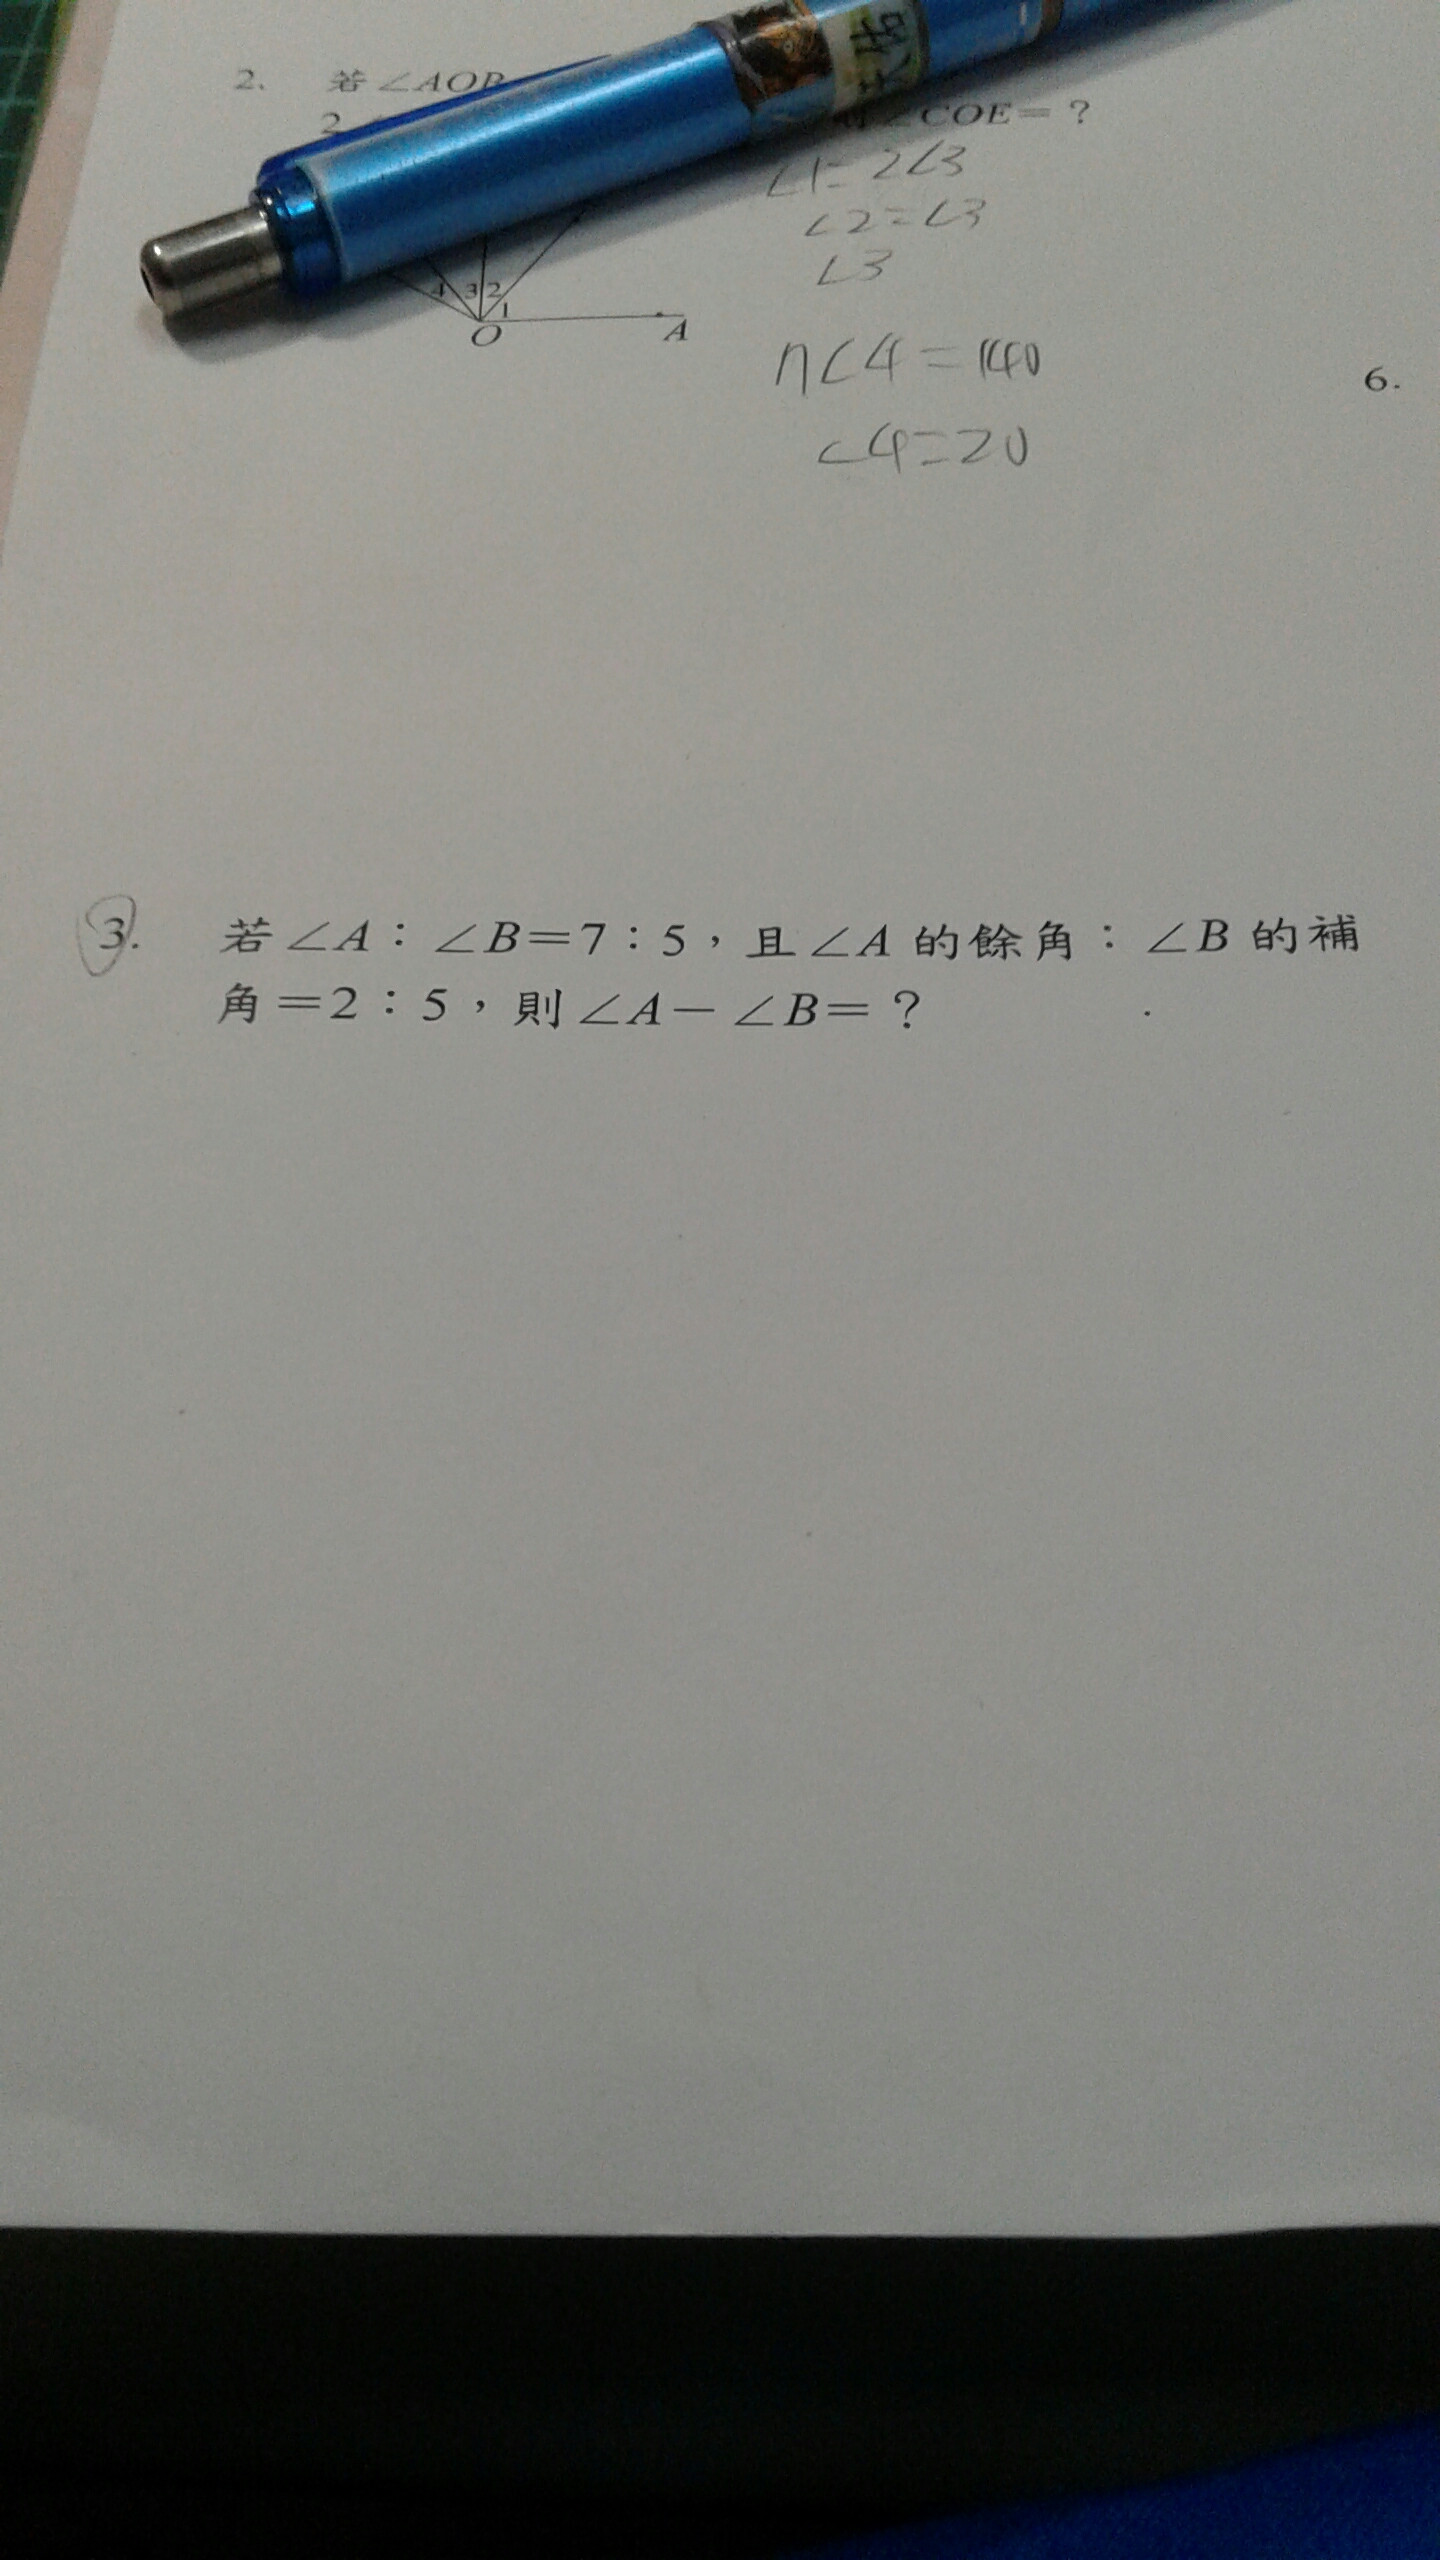 2. 若∠AOB
2
∠COE=?
∠1=2∠3
∠2=∠3
∠3
4 3 2 1
O A
n∠4=140
∠4=20
6.
3. 若∠A:∠B=7:5,且∠A的餘角:∠B的補
角=2:5,則∠A-∠B=?